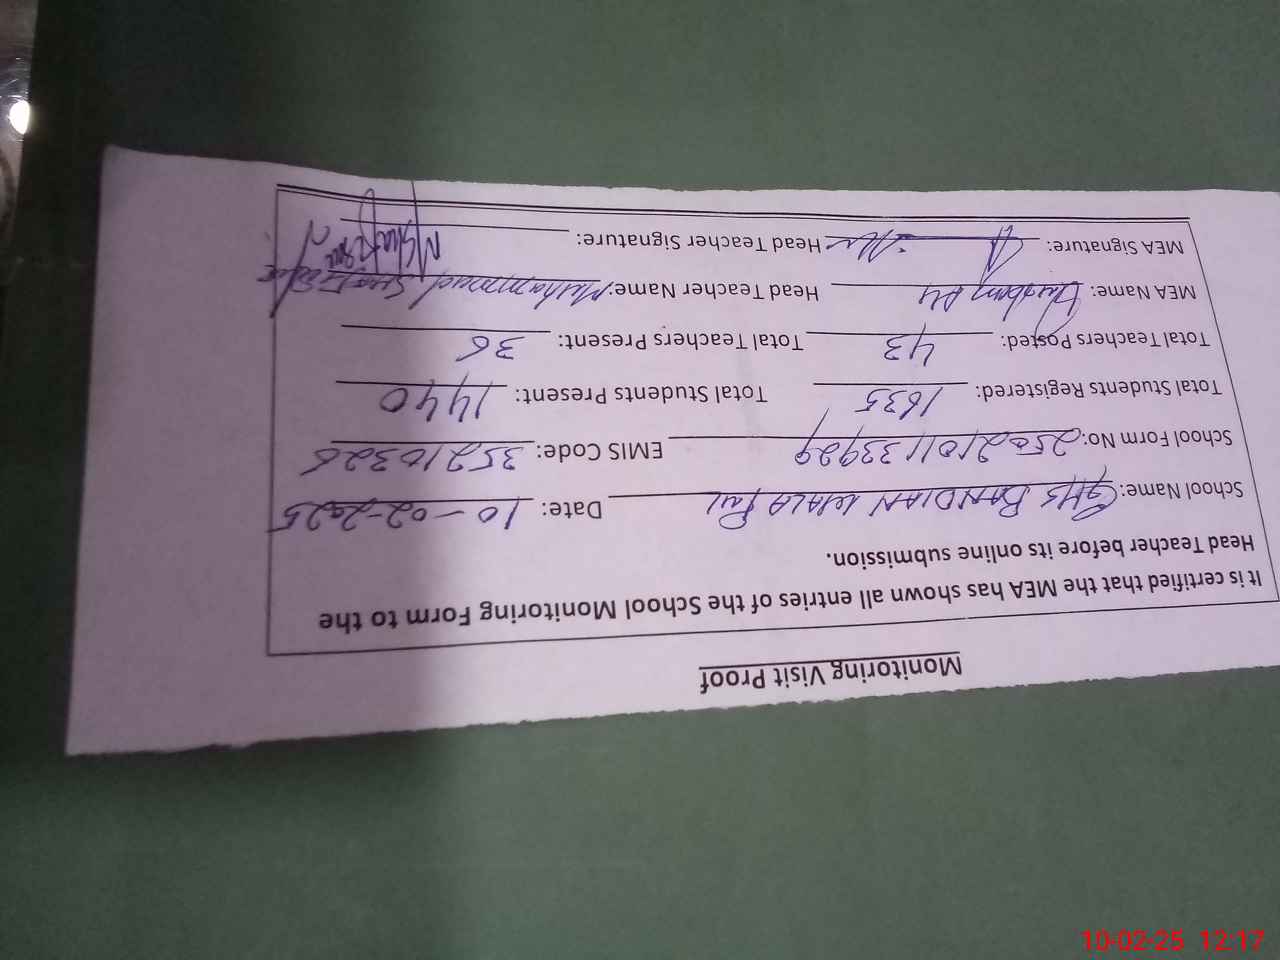 Monitoring Visit Proof
It is certified that the MEA has shown all entries of the School Monitoring Form to the
Head Teacher before its online submission.
School Name: GHS BANDIAN WALA Pul Date: 10-02-2025
School Form No: 2502101133929 EMIS Code: 35210326
Total Students Registered: 1635 Total Students Present: 1440
Total Teachers Posted: 43 Total Teachers Present: 36
MEA Name: Head Teacher Name: Muhammad
MEA Signature: Head Teacher Signature:
10-02-25 12:17